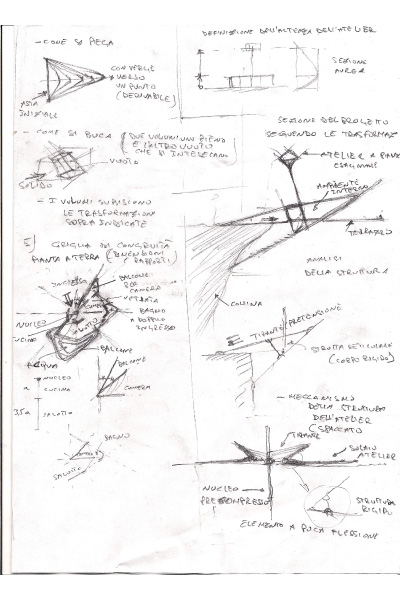 - COME SI PIEGA
CONVERGE
VERSO
UN PUNTO
ASTA
INIZIALE
- COME SI BUCA
(DUE VOLUMI UN PIENO
E L'ALTRO VUOTO
CHE SI INTERSECANO
VUOTO
SOLIDO
= I VOLUMI SUBISCONO
LE TRASFORMAZIONI
SOPRA INDICATE
5) GRIGLIA DI CONGRUITÀ
PIANTA A TERRA (DIMENSIONI
E RAPPORTI)
INGRESSO
BALCONE
PER
CAMERA
VETRATA
BAGNO
A DOPPIO
INGRESSO
NUCLEO
CUCINA
SALOTTO
BALCONE
BALCONE
ACQUA
NUCLEO
CUCINA
CAMERA
3,5a
SALOTTO
BAGNO
SALOTTO
DEFINIZIONE DELL'ALTEZZA DELL'ATELIER
SEZIONE
AUREA
SEZIONE DEL PROGETTO
SEGUENDO LE TRASFORMAZ
ATELIER A PIANTA
ESAGONALE
AMBIENTE
INTERNO
TERRAZZO
ANALISI
DELLA STRUTTURA
COLLINA
TIRANTE
PRETENSIONE
STRUTTURA RETICOLARE
(CORPO RIGIDO)
- MECCANISMO
DELLA STRUTTURA
DELL'ATELIER
(SPACCATO
TIRANTE
SOLAIO
ATELIER
NUCLEO
PRECOMPRESSO
STRUTTURA
RIGIDA
ELEMENTO A POCA FLESSIONE